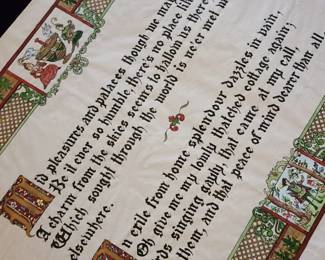 Mid pleasures and palaces though we
Be it ever so humble, there's no place
A charm from the skies seems to hallow us there
Which sought through the world is ne'er met
elsewhere.
An exile from home splendour dazzles in vain,
Oh give me my lowly thatched cottage again;
singing gayly that came at my call,
them, and that peace of mind dearer than all.